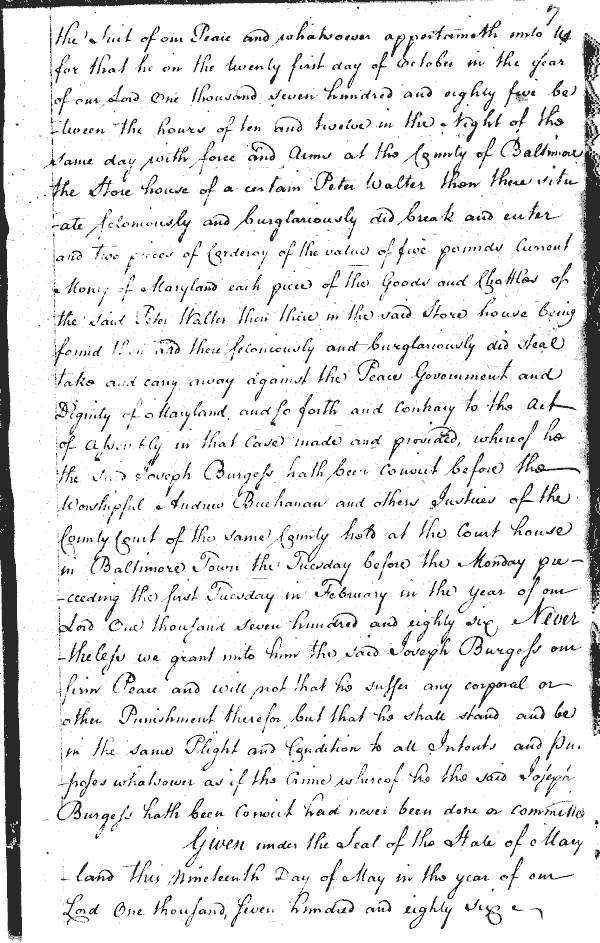 7
the Suit of our Peace and whatsoever appertaineth unto Us
for that he on the twenty first day of October in the year
of our Lord One thousand seven hundred and eighty five be
-tween the hours of ten and twelve in the Night of the
same day with force and Arms at the County of Baltimore
the Store house of a certain Peter Walter then there situ
-ate feloniously and burglariously did break and enter
and two pieces of Corderoy of the value of five pounds Current
Money of Maryland each piece of the Goods and Chattles of
the said Peter Walter then there in the said Store house being
found then and there feloniously and burglariously did steal
take and carry away against the Peace Government and
Dignity of Maryland, and so forth and contrary to the Act
of Assembly in that Case made and provided, whereof he
the said Joseph Burgess hath been convict before the
Worshipful Andrew Buchanan and others Justices of the
County Court of the same County held at the Court house
in Baltimore Town the Tuesday before the Monday pre-
-ceeding the first Tuesday in February in the year of our
Lord One thousand seven hundred and eighty six Never
-theless we grant unto him the said Joseph Burgess our
firm Peace and will not that he suffer any corporal or
other Punishment therefor but that he shall stand and be
in the same Plight and Condition to all Intents and Pur
-poses whatsower as if the Crime whereof he the said Joseph
Burgess hath been Convict had never been done or committed
Given under the Seal of the State of Mary
-land this Nineteenth Day of May in the year of our
Lord One thousand, seven hundred and eighty six